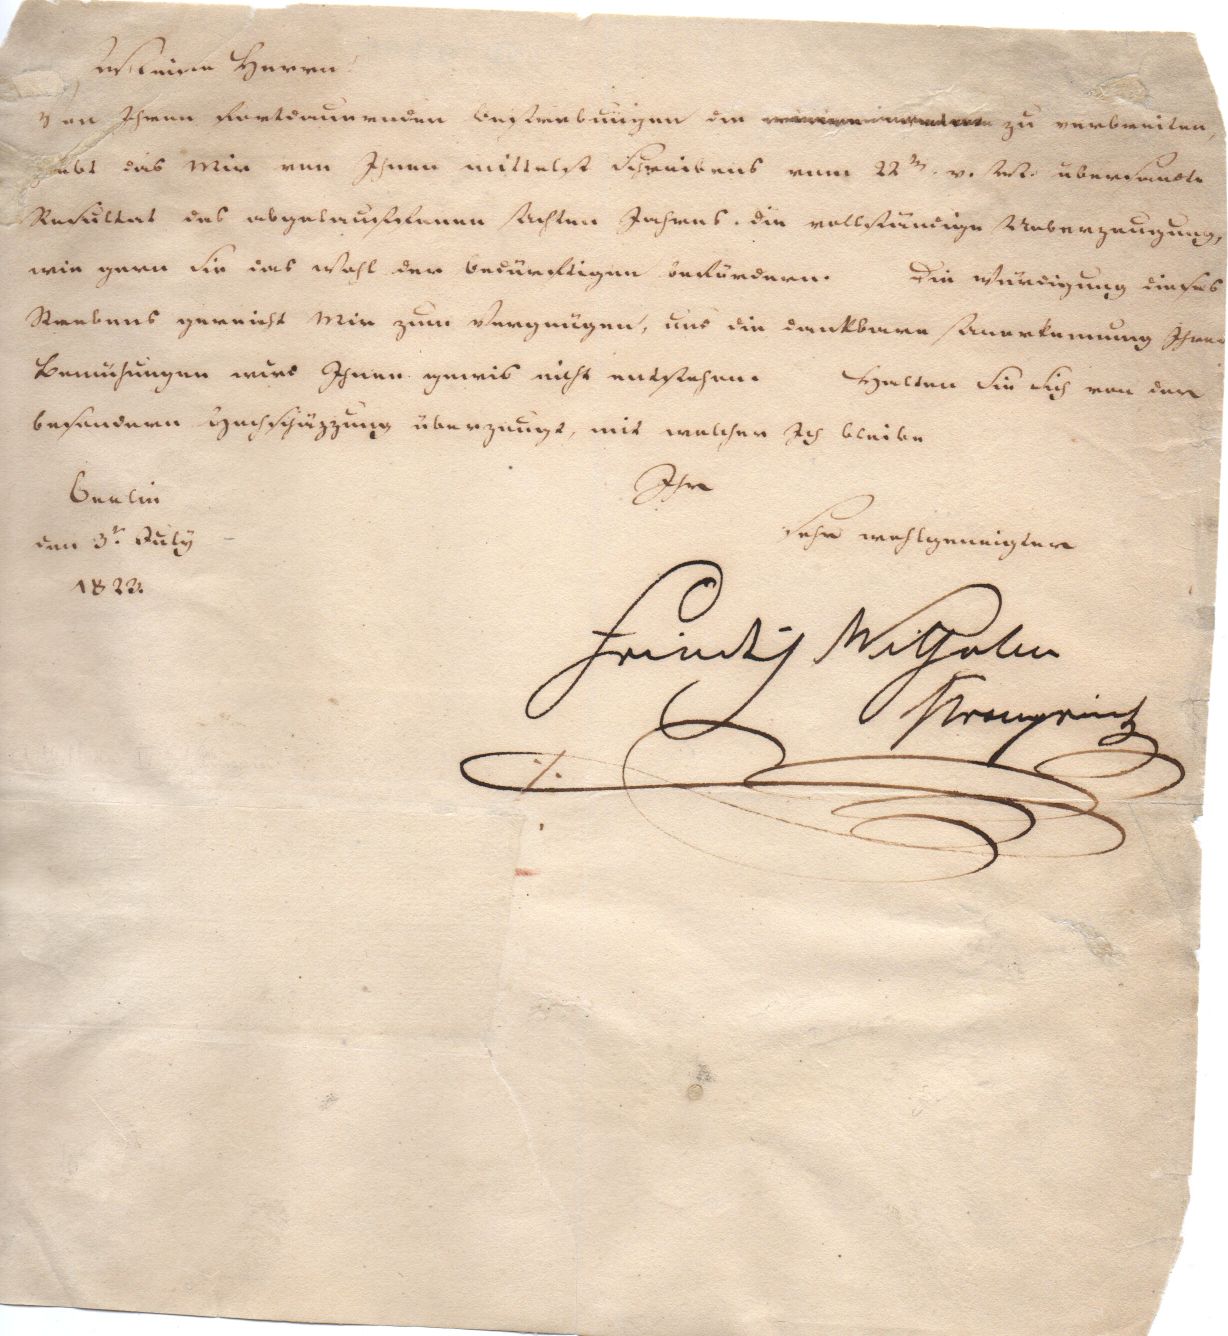 Meine Herrn!
Von Ihren fortdauernden Bestrebungen die zu verbreiten,
giebt das Mir von Ihnen mittelst Schreibens vom 22ten v. M. übersandte
Resultat des abgelaufenen achten Jahres die vollständige Ueberzeugung,
wie gern Sie das Wohl der Bedürftigen befördern. Die Würdigung dieses
Strebens gereicht Mir zum Vergnügen, und die dankbare Anerkennung Ihrer
Bemühungen wird Ihnen gewis nicht entstehen. Halten Sie Sich von der
besondern Hochschäzzung überzeugt, mit welcher Ich bleibe
Ihr
Berlin
sehr wohlgeneigter
den 3t. July
1822.
Friedrich Wilhelm
Kronprinz